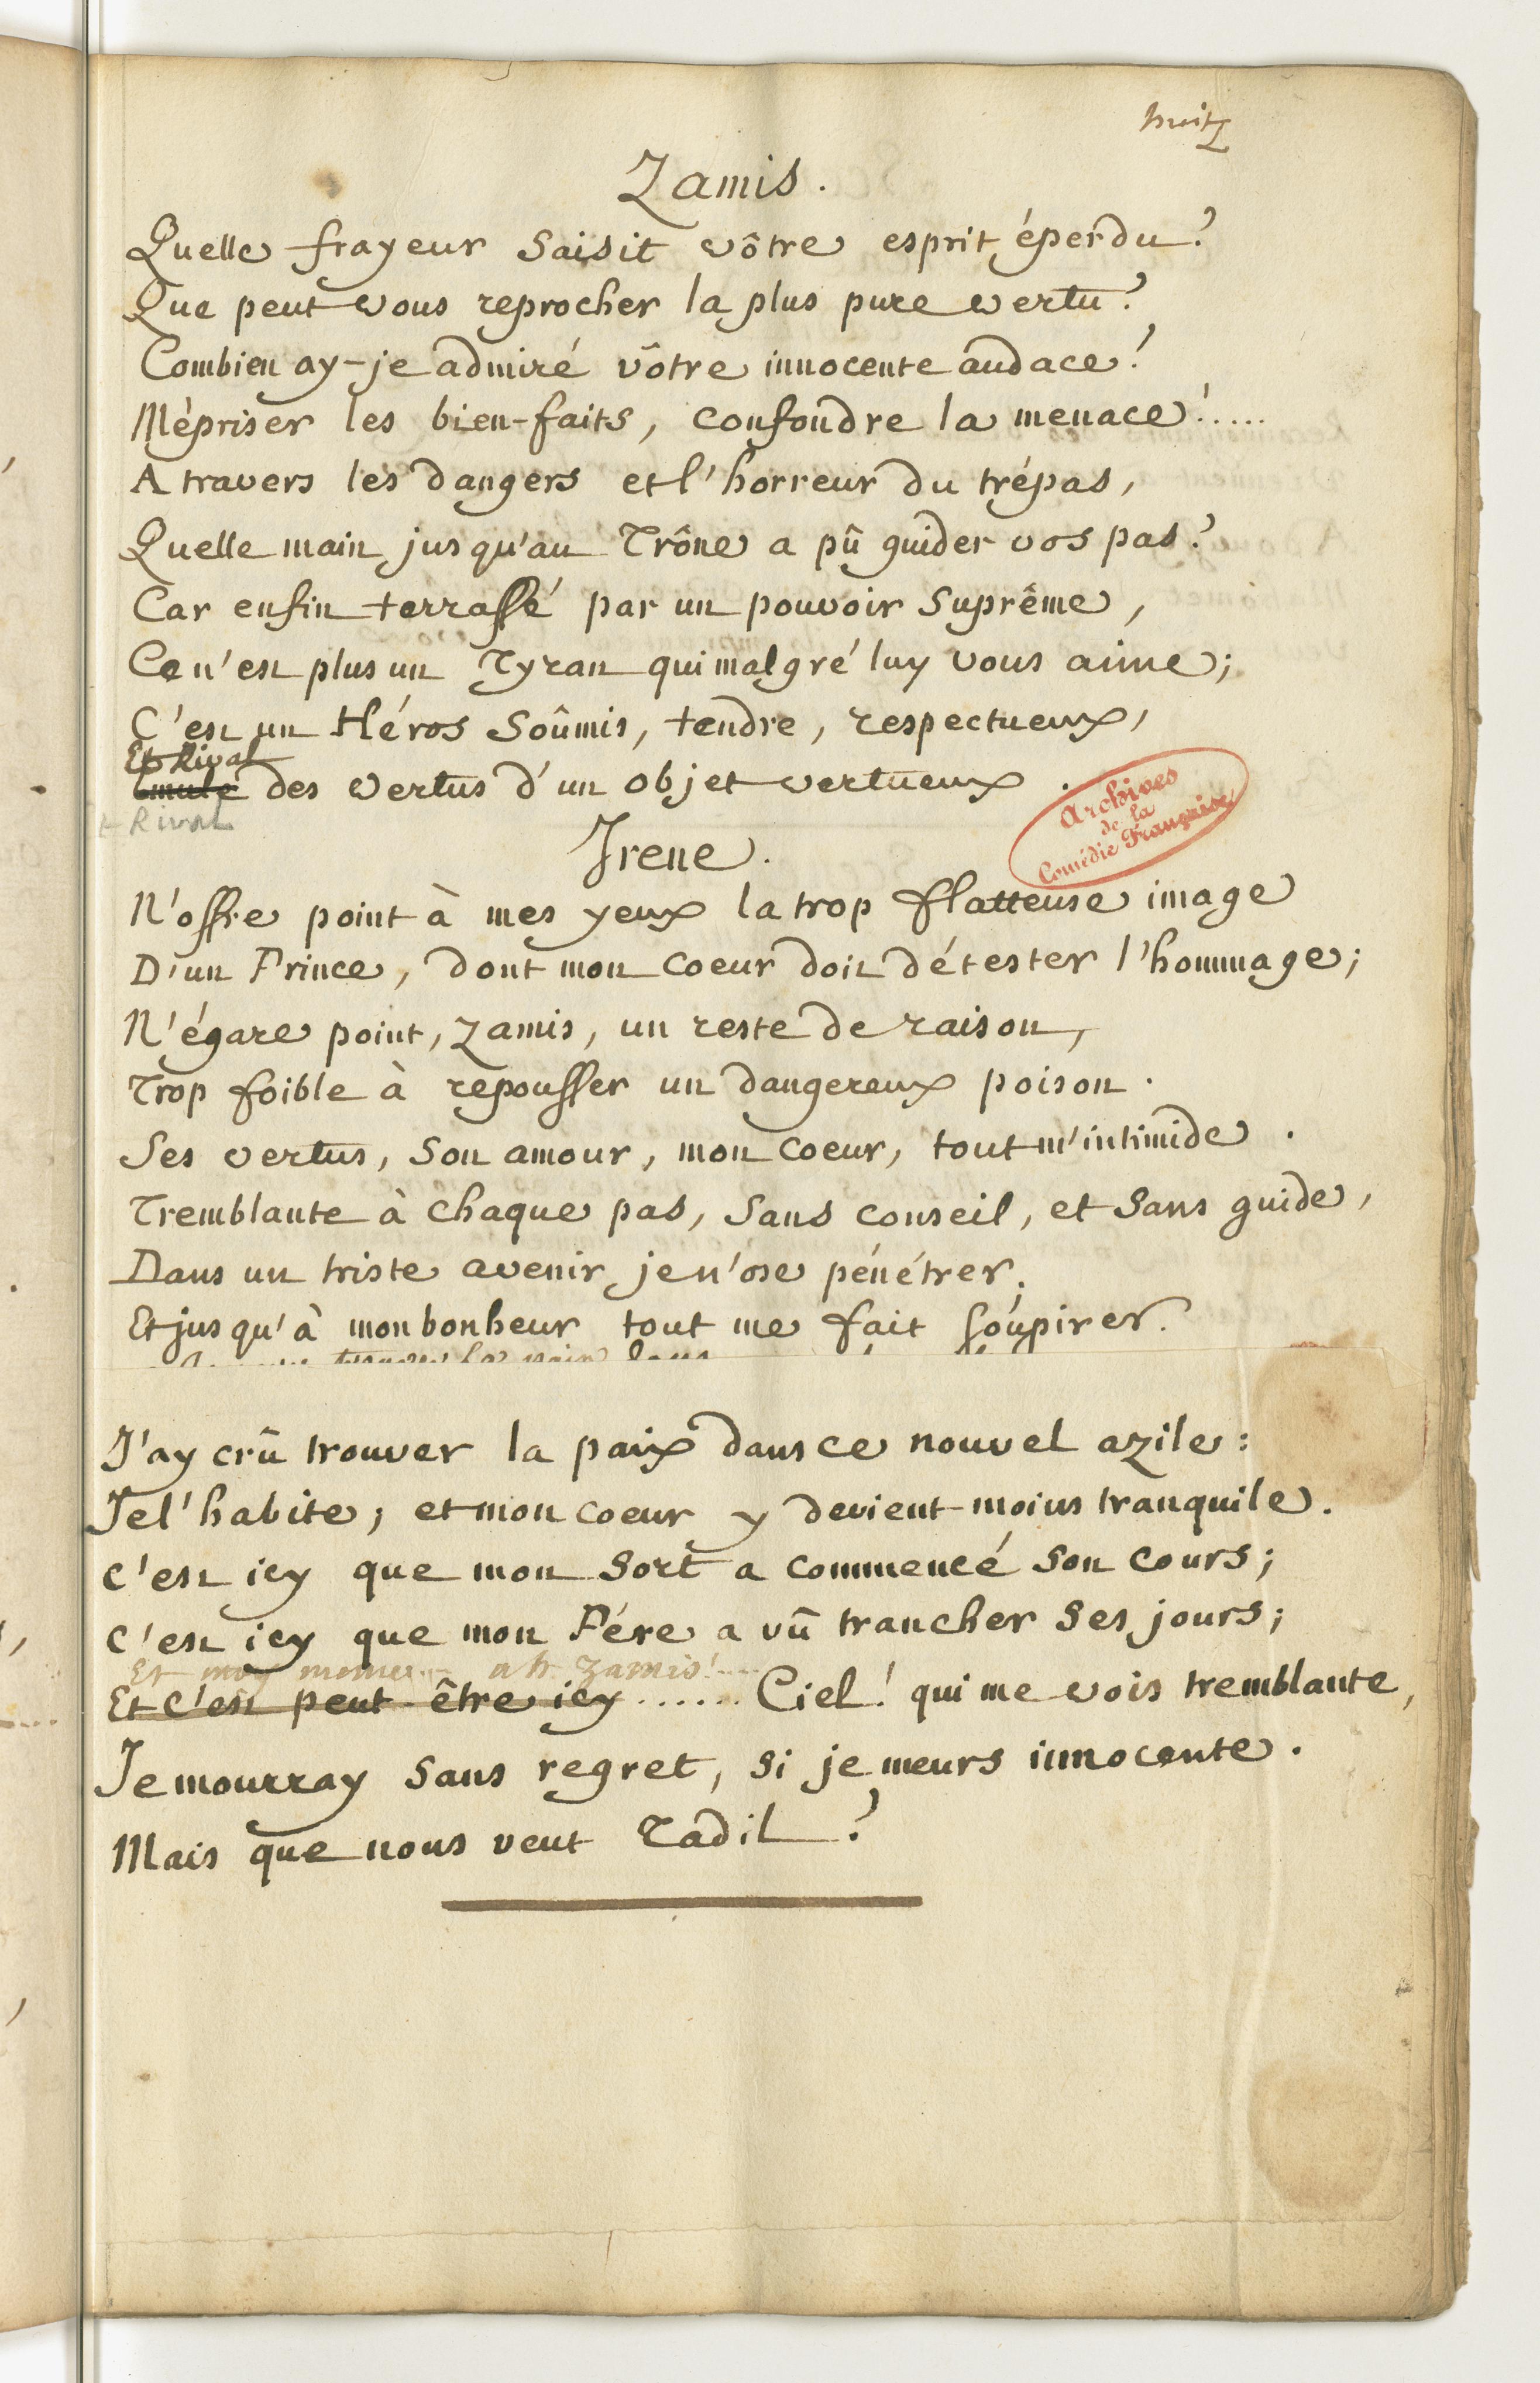 huit
Zamis.
Quelle frayeur saisit vôtre esprit éperdu?
Que peut vous reprocher la plus pure vertu?
Combien ay-je admiré vôtre innocente audace!
Mépriser les bien-faits, confondre la menace!.....
A travers les dangers et l'horreur du trépas,
Quelle main jusqu'au Trône a pû guider vos pas?
Car enfin terrassé par un pouvoir suprême,
Ce n'est plus un Tyran qui malgré luy vous aime;
C'est un Héros soûmis, tendre, respectueux,
Et Rival
Emule des vertus d'un objet vertueux.
Et Rival
Archives
de la
Comédie Française
Irene.
N'offre point à mes yeux la trop flatteuse image
D'un Prince, dont mon coeur doit détester l'hommage;
N'égare point, Zamis, un reste de raison,
Trop foible à repousser un dangereux poison.
Ses vertus, son amour, mon coeur, tout m'intimide.
Tremblante à chaque pas, sans conseil, et sans guide,
Dans un triste avenir je n'ose pénétrer.
Et jusqu'à mon bonheur tout me fait soûpirer.
trouver la paix dans
J'ay crû trouver la paix dans ce nouvel azile:
Je l'habite; et mon coeur y devient moins tranquile.
C'est icy que mon sort a commencé son cours;
C'est icy que mon Pére a vû trancher ses jours;
Et moy meme... ah Zamis!....
Et c'est peut-être icy...... Ciel! qui me vois tremblante,
Je mourray sans regret, si je meurs innocente.
Mais que nous veut Tadil?